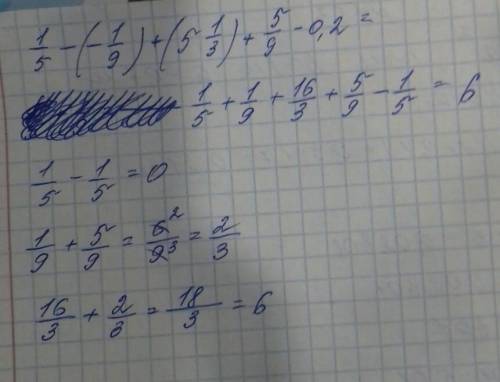 1/5 - (-1/9) + (5 1/3) + 5/9 - 0,2 =
1/5 + 1/9 + 16/3 + 5/9 - 1/5 = 6
1/5 - 1/5 = 0
1/9 + 5/9 = 6²/9³ = 2/3
16/3 + 2/3 = 18/3 = 6